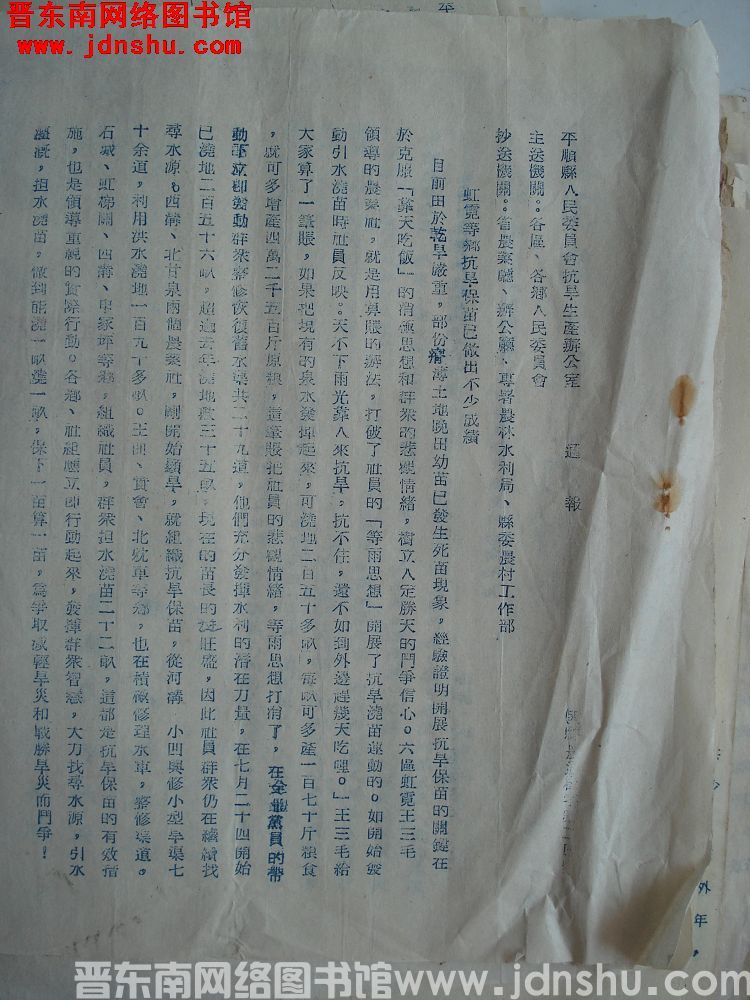 晋东南网络图书馆
www.jdnshu.com
平順縣人民委員會抗旱生產辦公室 通報
主送機關:各區、各鄉人民委員會
抄送機關:省農業廳、辦公廳、專署農林水利局、縣委農村工作部
虹霓等鄉抗旱保苗已做出不少成績
目前由於乾旱嚴重,部份瘠薄土地晚出幼苗已發生死苗現象,經驗證明開展抗旱保苗的關鍵在
於克服「靠天吃飯」的消極思想和群衆的悲觀情緒,樹立人定勝天的鬥爭信心。六區虹霓王三毛
領導的農業社,就是用算賬的辦法,打破了社員的「等雨思想」開展了抗旱澆苗運動的。如開始發
動引水澆苗時社員反映:天不下雨光靠人來抗旱,抗不住,還不如到外邊趕幾天吃哩。」王三毛給
大家算了一筆賬,如果把現有的泉水發揮起來,可澆地二百五十多畝,每畝可多產一百七十斤粮食
,就可多增產四萬二千五百斤原粮,這筆賬把社員的悲觀情緒,等雨思想打消了,在全體黨員的帶
動下立即發動群衆整修恢復舊水渠共二十九道,他們充分發揮水利的潛在力量,在七月二十四開始
已澆地二百五十六畝,超過去年澆地數三十五畝,現在的苗長的挺旺盛,因此社員群衆仍在繼續找
尋水源。西溝、北甘泉兩個農業社,剛開始顯旱,就組織抗旱保苗,從河溝 小凹與修小型旱渠七
十余道,利用洪水澆地一百九十多畝。王曲、實會、北耽車等鄉,也在積極修理水車,整修渠道。
石城、虹梯關、西溝、申家坪等鄉,組織社員,群衆担水澆苗二十二畝,這都是抗旱保苗的有效措
施,也是領導重視的實際行動。各鄉、社組應立即行動起來,發揮群衆智慧,大力找尋水源,引水
灌溉,担水澆苗,做到能澆一畝澆一畝,保下一苗算一苗,爲爭取減輕旱災和戰勝旱災而鬥爭!
外
年,
晋东南网络图书馆www.jdnshu.com